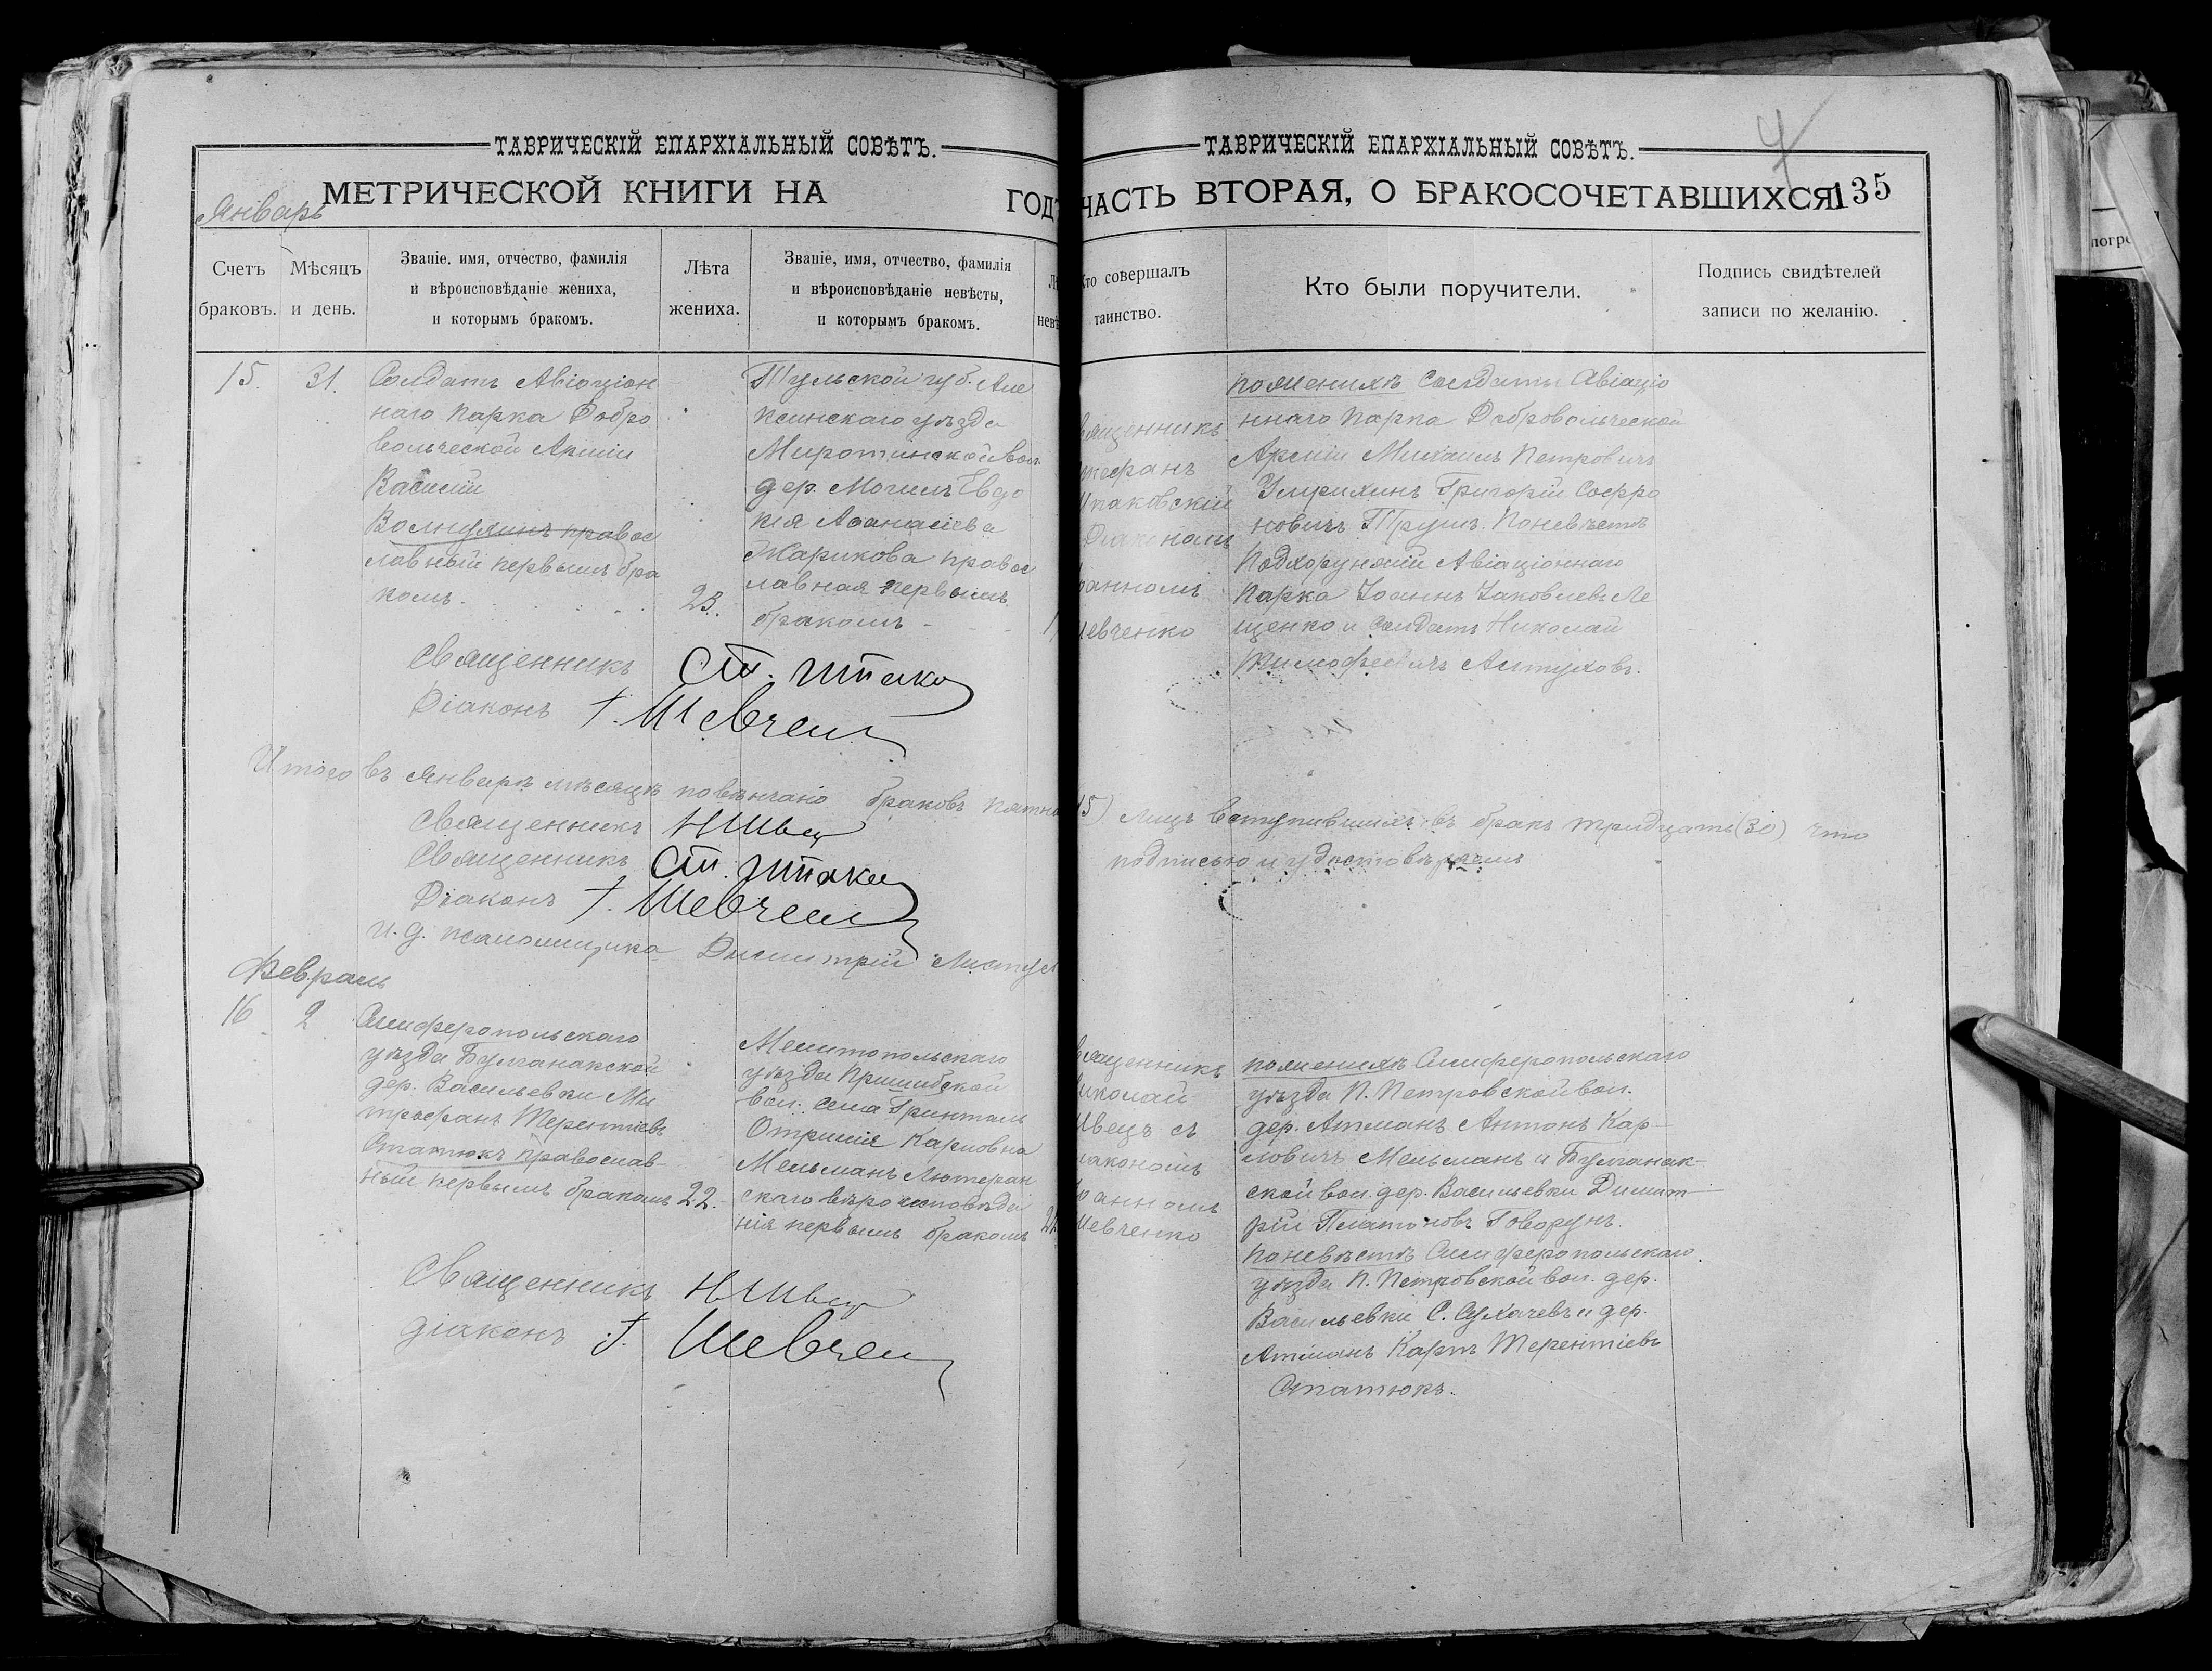 ТАВРИЧЕСКІЙ ЕПАРХІАЛЬНЫЙ СОВѢТЪ.
Январь
МЕТРИЧЕСКОЙ КНИГИ НА ГОДЪ
Счетъ браковъ.
Мѣсяцъ и день.
Званіе. имя, отчество, фамилія
и вѣроисповѣданіе жениха,
и которымъ бракомъ.
Лѣта жениха.
Званіе, имя, отчество, фамилія
и вѣроисповѣданіе невѣсты,
и которымъ бракомъ.
15.
31.
Солдатъ Авіаціон
наго парка Добро
вольческой Арміи
Василій
Волнулинъ правос
лавный первымъ бра
комъ.
23.
Тульской губ. Але
ксинскаго уѣзда
Миротинской вол.
дер. Могилъ Евдо
кія Аѳанасіева
Жарикова правос
лавная первымъ
бракомъ
Священникъ Ст. Штако
Діаконъ І. Шевчен
Итого въ Январѣ мѣсяцѣ повѣнчано браковъ пятна
Священникъ Н Швец
Священникъ Ст. Штако
Діаконъ І. Шевчен
И. д. псаломщика Димитрій
Февраль
16
2
Симферопольскаго
уѣзда Булганакской
дер. Васильевки Ми
трофанъ Терентіевъ
Статюкъ православ-
ный первымъ бракомъ
22.
Мелитопольскаго
уѣзда Пришибской
вол. села Гринталь
Карловна
Мельманъ Лютеран
скаго вѣроисповѣда
нія первымъ бракомъ
Священникъ Н Швец
діаконъ І. Шевчен
ТАВРИЧЕСКІЙ ЕПАРХІАЛЬНЫЙ СОВѢТЪ.
ЧАСТЬ ВТОРАЯ, О БРАКОСОЧЕТАВШИХСЯ
135
Кто совершалъ
таинство.
Кто были поручители.
Подпись свидѣтелей
записи по желанію.
вященникъ
ефанъ
таковскій
Діаконом
анномъ
евченко
по женихѣ солдаты Авіаціо
ннаго парка Добровольческой
Арміи Михаилъ Петровичъ
Григорій Софро
новичъ Трушъ. По невѣстѣ
Подхорунжій Авіаціоннаго
парка Іоаннъ Іаковлевъ Ле
щенко и солдатъ Николай
Тимофеевичъ Алтуховъ.
15) лицъ вступившихъ въ бракъ тридцать (30) что
подписью и удостовѣряемъ
вященникъ
иколай
Швецъ съ
іакономъ
оанномъ
Шевченко
по женихѣ Симферопольскаго
уѣзда П. Петровской вол.
дер. Атманъ Антонъ Кар-
ловичъ Мельманъ и Булганак-
ской вол. дер. Васильевки Димит-
рій Платоновъ Говорунъ.
по невѣстѣ Симферопольскаго
уѣзда П. Петровской вол. дер.
Васильевки С. Сухачевъ и дер.
Атманъ Карпъ Терентіевъ
Статюкъ.